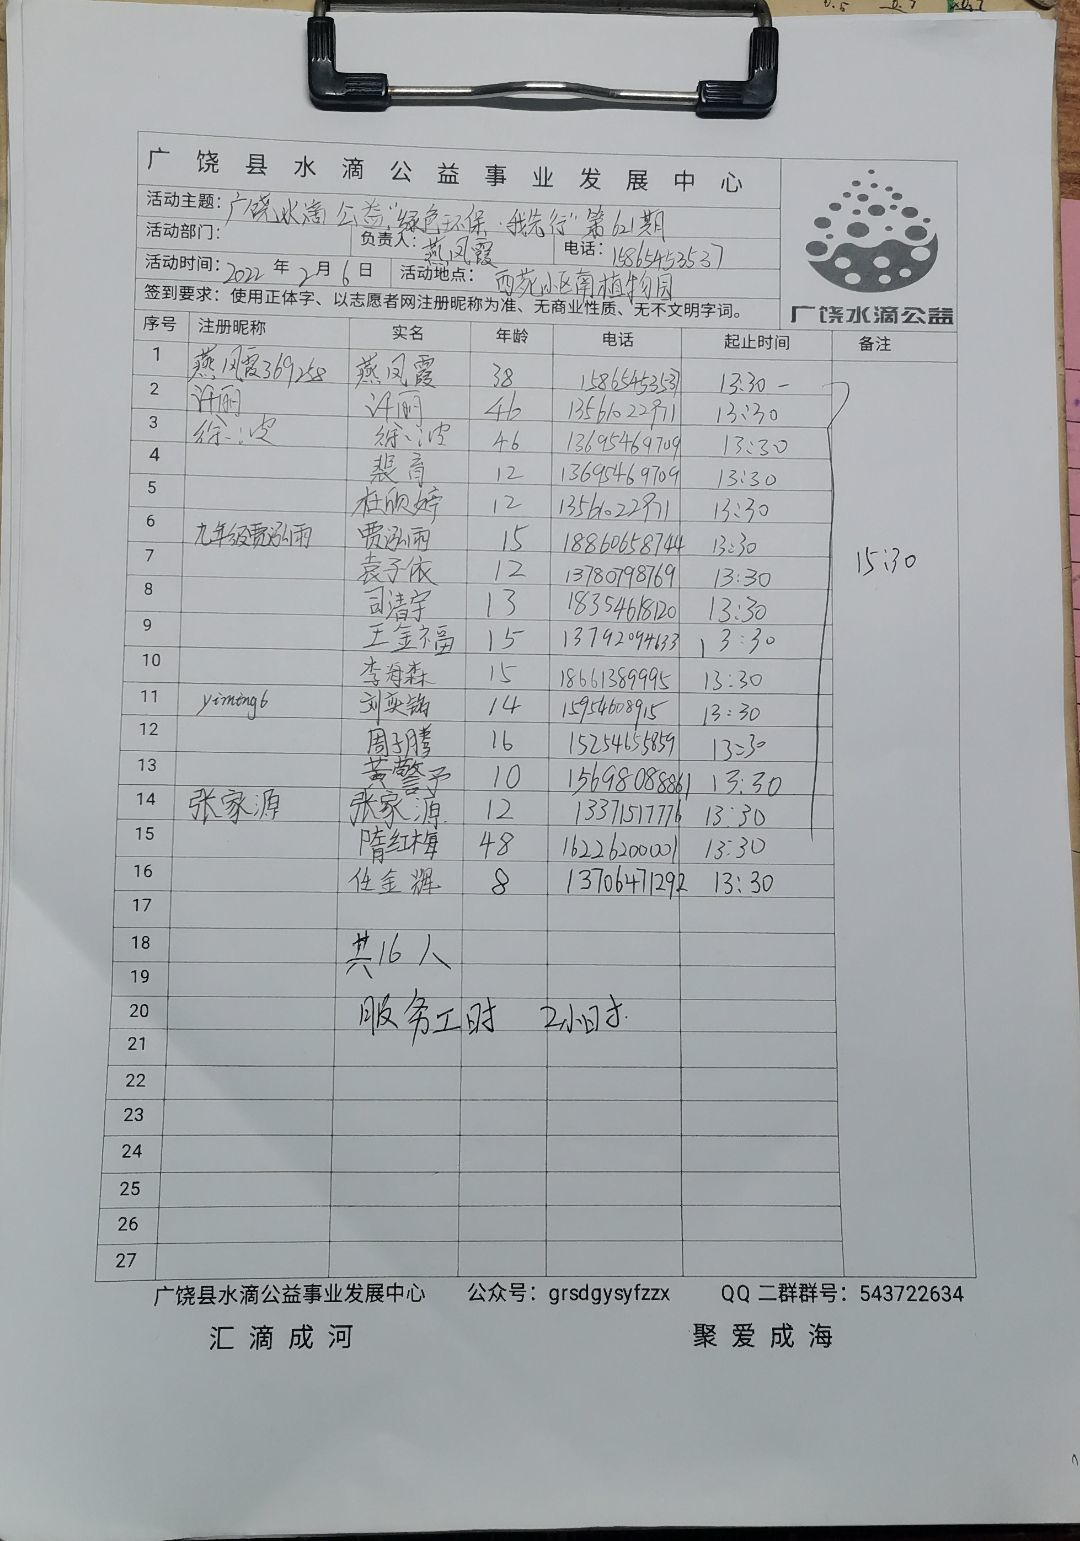 广饶县水滴公益事业发展中心
活动主题：广饶水滴公益“绿色环保·我先行”第621期
活动部门： 负责人：燕凤霞 电话：15865453537
活动时间：2022年2月6日 活动地点：西苑小区南植物园
签到要求：使用正体字、以志愿者网注册昵称为准、无商业性质、无不文明字词。
广饶水滴公益
序号 注册昵称 实名 年龄 电话 起止时间 备注
1 燕凤霞369258 燕凤霞 38 15865453537 13:30-
2 许丽 许丽 46 13:30
3 46 13695469709 13:30
4 裴育 12 13695469709 13:30
5 杜欣婷 12 13:30
6 九年级贾泓雨 贾泓雨 15 18860658744 13:30
15:30
7 袁子依 12 13780798769 13:30
8 司清宇 13 18354618120 13:30
9 王金福 15 13792094633 13:30
10 李海森 15 18661389995 13:30
11 yiming6 刘奕铭 14 15954608915 13:30
12 周子腾 16 15254655859 13:30
13 黄警予 10 15698088861 13:30
14 张家源 张家源 12 13371517776 13:30
15 隋红梅 48 16226200001 13:30
16 任金辉 8 13706471292 13:30
17
18 共16人
19
20 服务工时 2小时.
21
22
23
24
25
26
27
广饶县水滴公益事业发展中心 公众号：grsdgysyfzzx QQ 二群群号：543722634
汇滴成河 聚爱成海